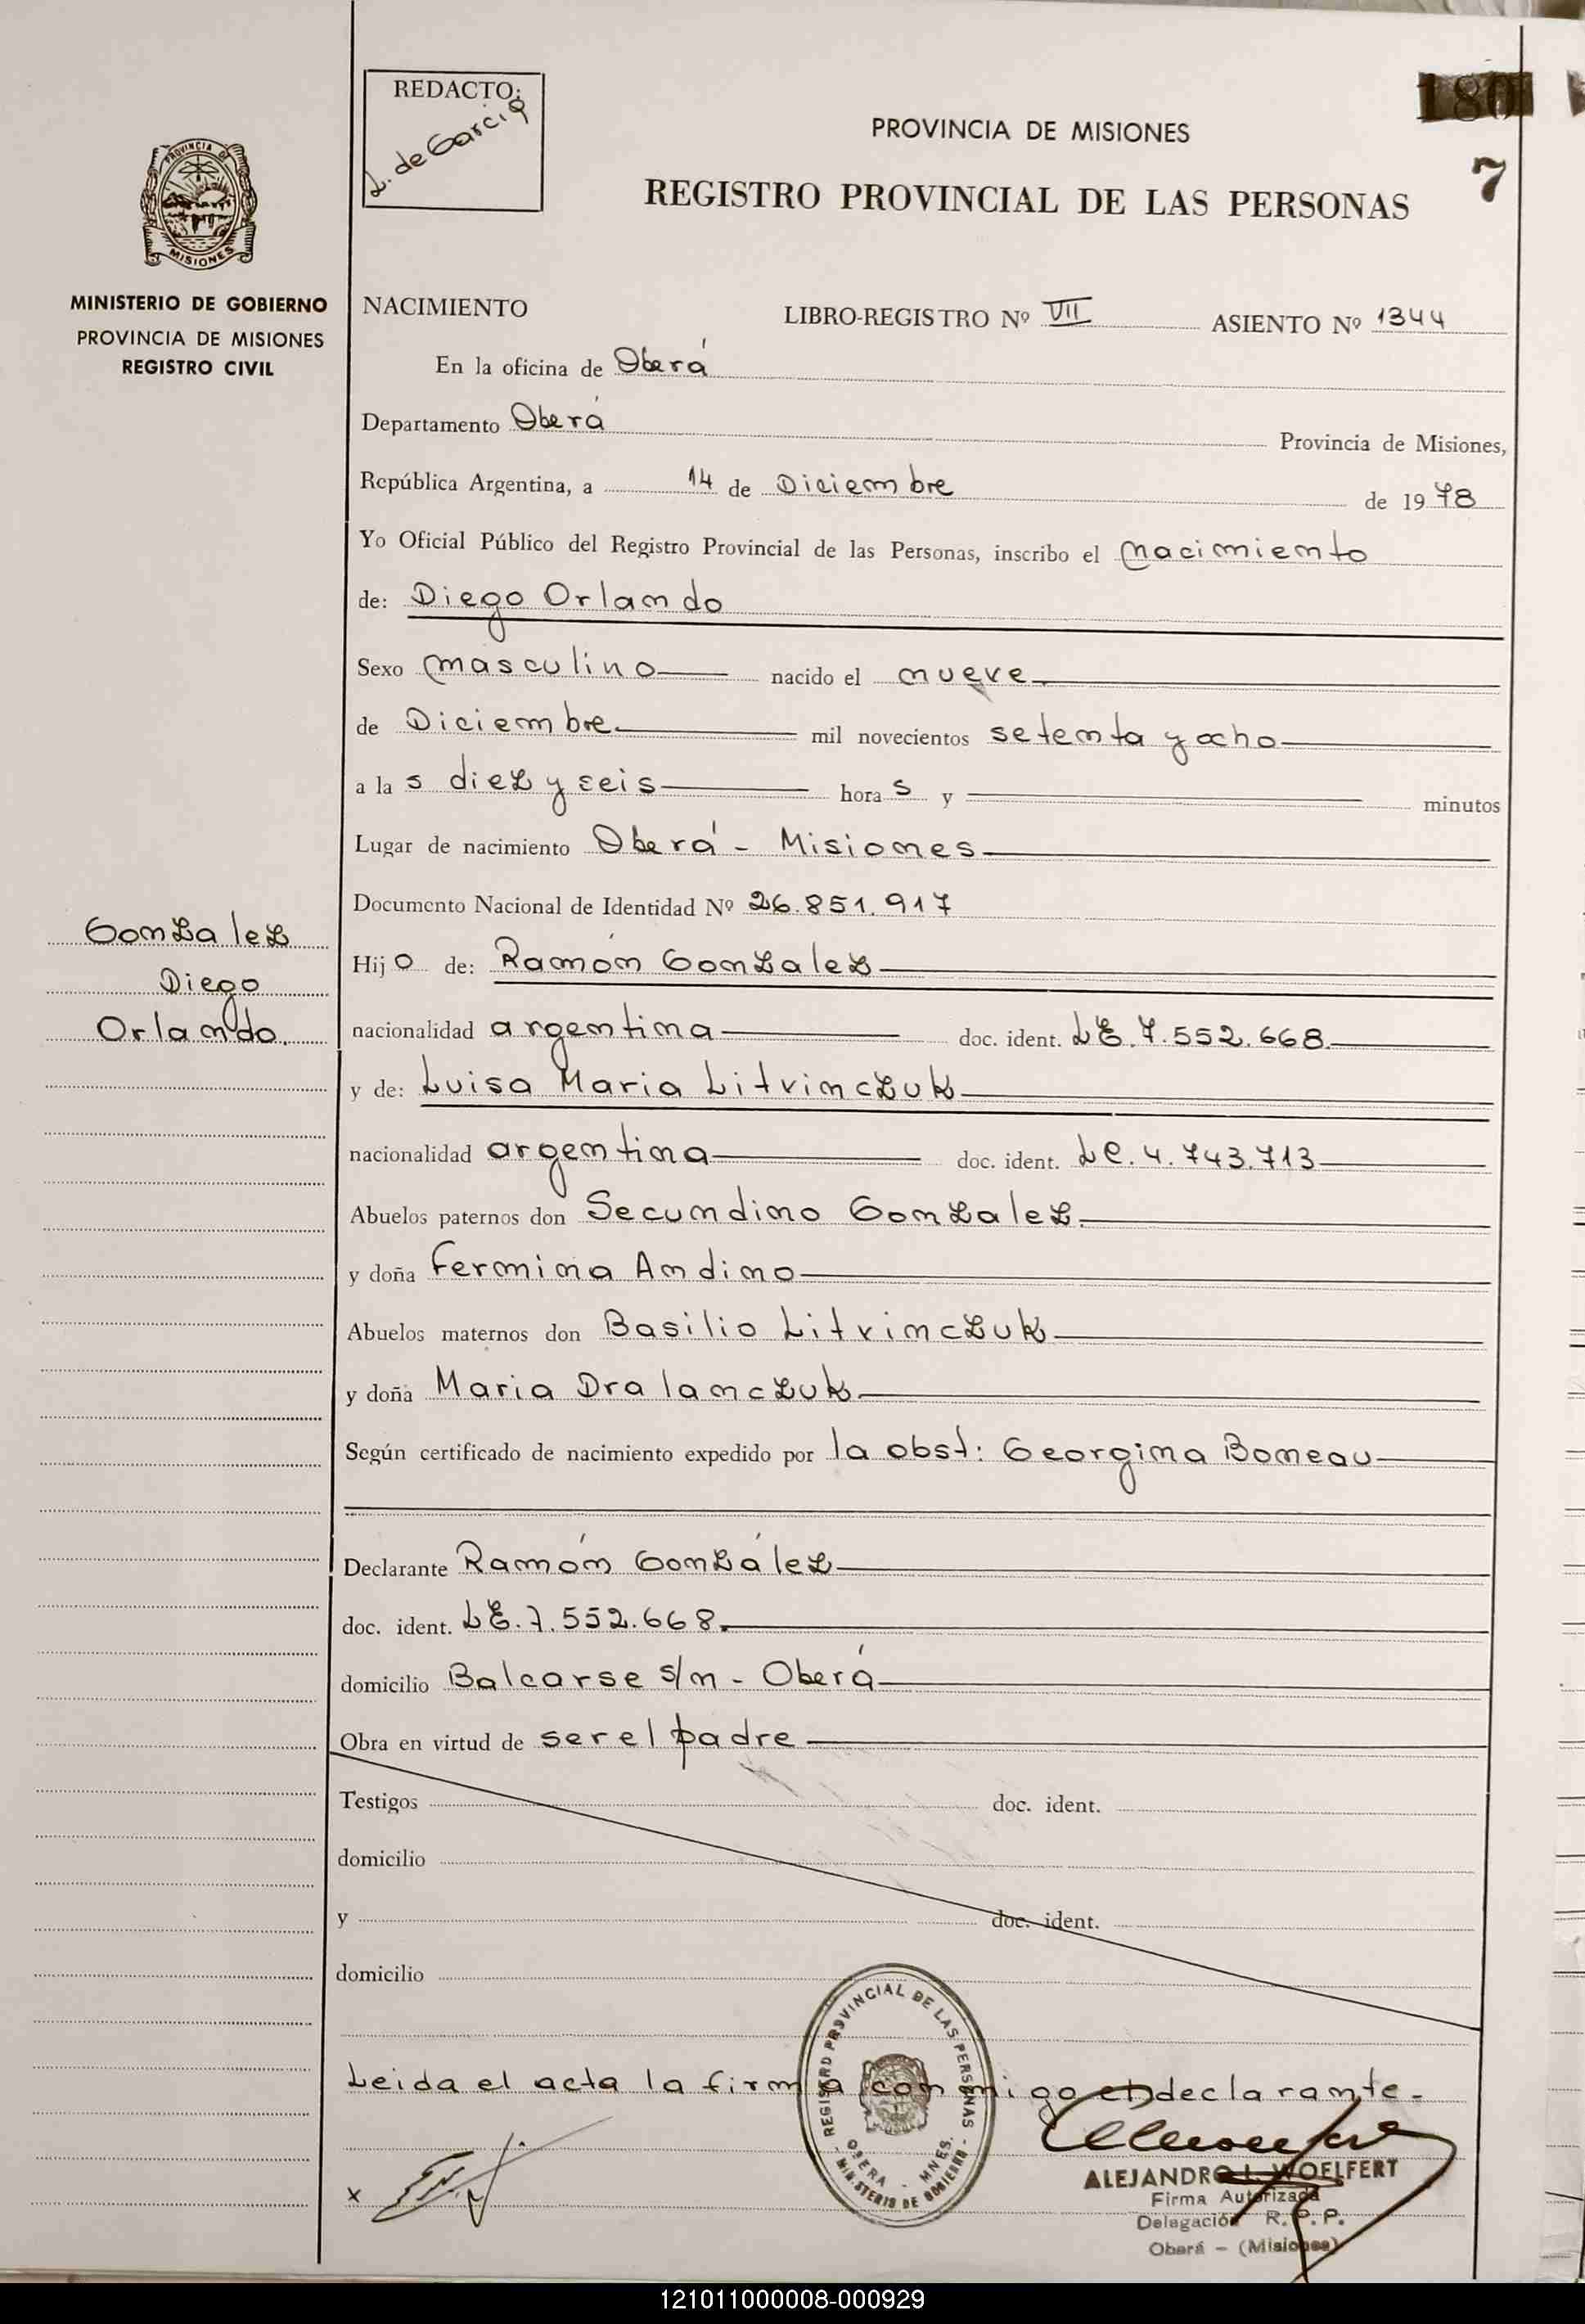 REDACTO:
L. de Garcia
180
PROVINCIA DE MISIONES
7
REGISTRO PROVINCIAL DE LAS PERSONAS
PROVINCIA DE
MISIONES
MINISTERIO DE GOBIERNO
PROVINCIA DE MISIONES
REGISTRO CIVIL
NACIMIENTO LIBRO-REGISTRO Nº VII ASIENTO Nº 1344
En la oficina de Oberá
Departamento Oberá Provincia de Misiones,
República Argentina, a 14 de Diciembre de 1978
Yo Oficial Público del Registro Provincial de las Personas, inscribo el nacimiento
de: Diego Orlando
Sexo masculino nacido el nueve
de Diciembre mil novecientos setenta y ocho
a las diez y seis horas y minutos
Lugar de nacimiento Oberá - Misiones
Documento Nacional de Identidad Nº 26.851.917
Gonzalez
Diego
Orlando.
Hijo de: Ramón Gonzalez
nacionalidad argentina doc. ident. LE. 7.552.668.
y de: Luisa Maria Litvinczuk
nacionalidad argentina doc. ident. LC. 4.743.713
Abuelos paternos don Secundino Gonzalez.
y doña Fermina Andino
Abuelos maternos don Basilio Litvinczuk
y doña Maria Dralanczuk
Según certificado de nacimiento expedido por la obst: Georgina Boneau
Declarante Ramón González
doc. ident. LE. 7.552.668.
domicilio Balcarse s/n - Oberá
Obra en virtud de ser el padre
Testigos doc. ident.
domicilio
y doc. ident.
domicilio
Leida el acta la firma conmigo el declarante.
REGISTRO PROVINCIAL DE LAS PERSONAS
OBERA - MNES.
- MINISTERIO DE GOBIERNO -
x
ALEJANDRO L. WOELFERT
Firma Autorizada
Delegación R.P.P.
Oberá - (Misiones)
121011000008-000929